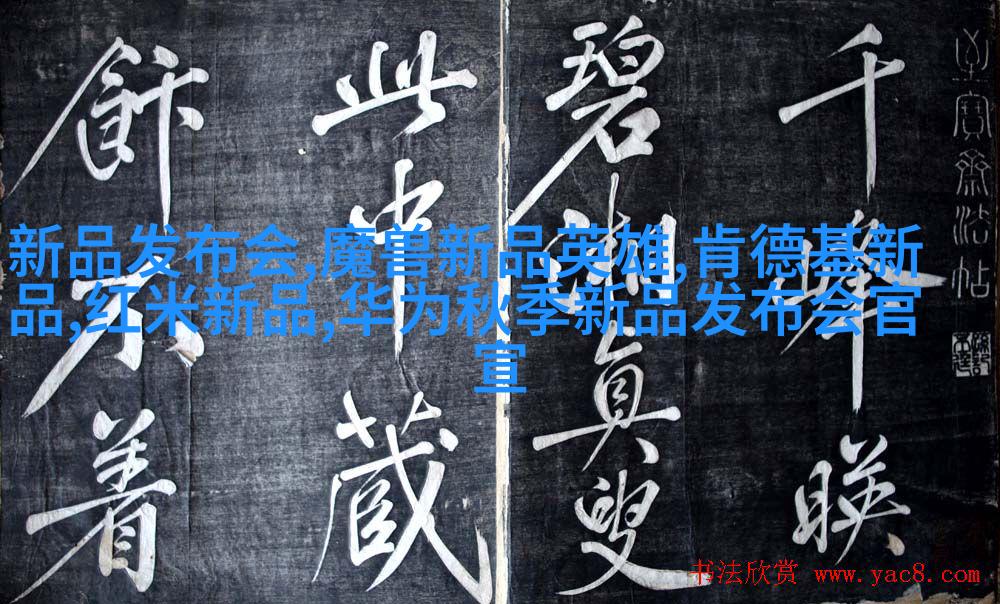 至寶齋法帖
千峰映
碧湘真叟
此中藏
餅不着
新品发布会,魔兽新品英雄,肯德基新
品,红米新品,华为秋季新品发布会官
宣
书法欣赏 www.yac8.com